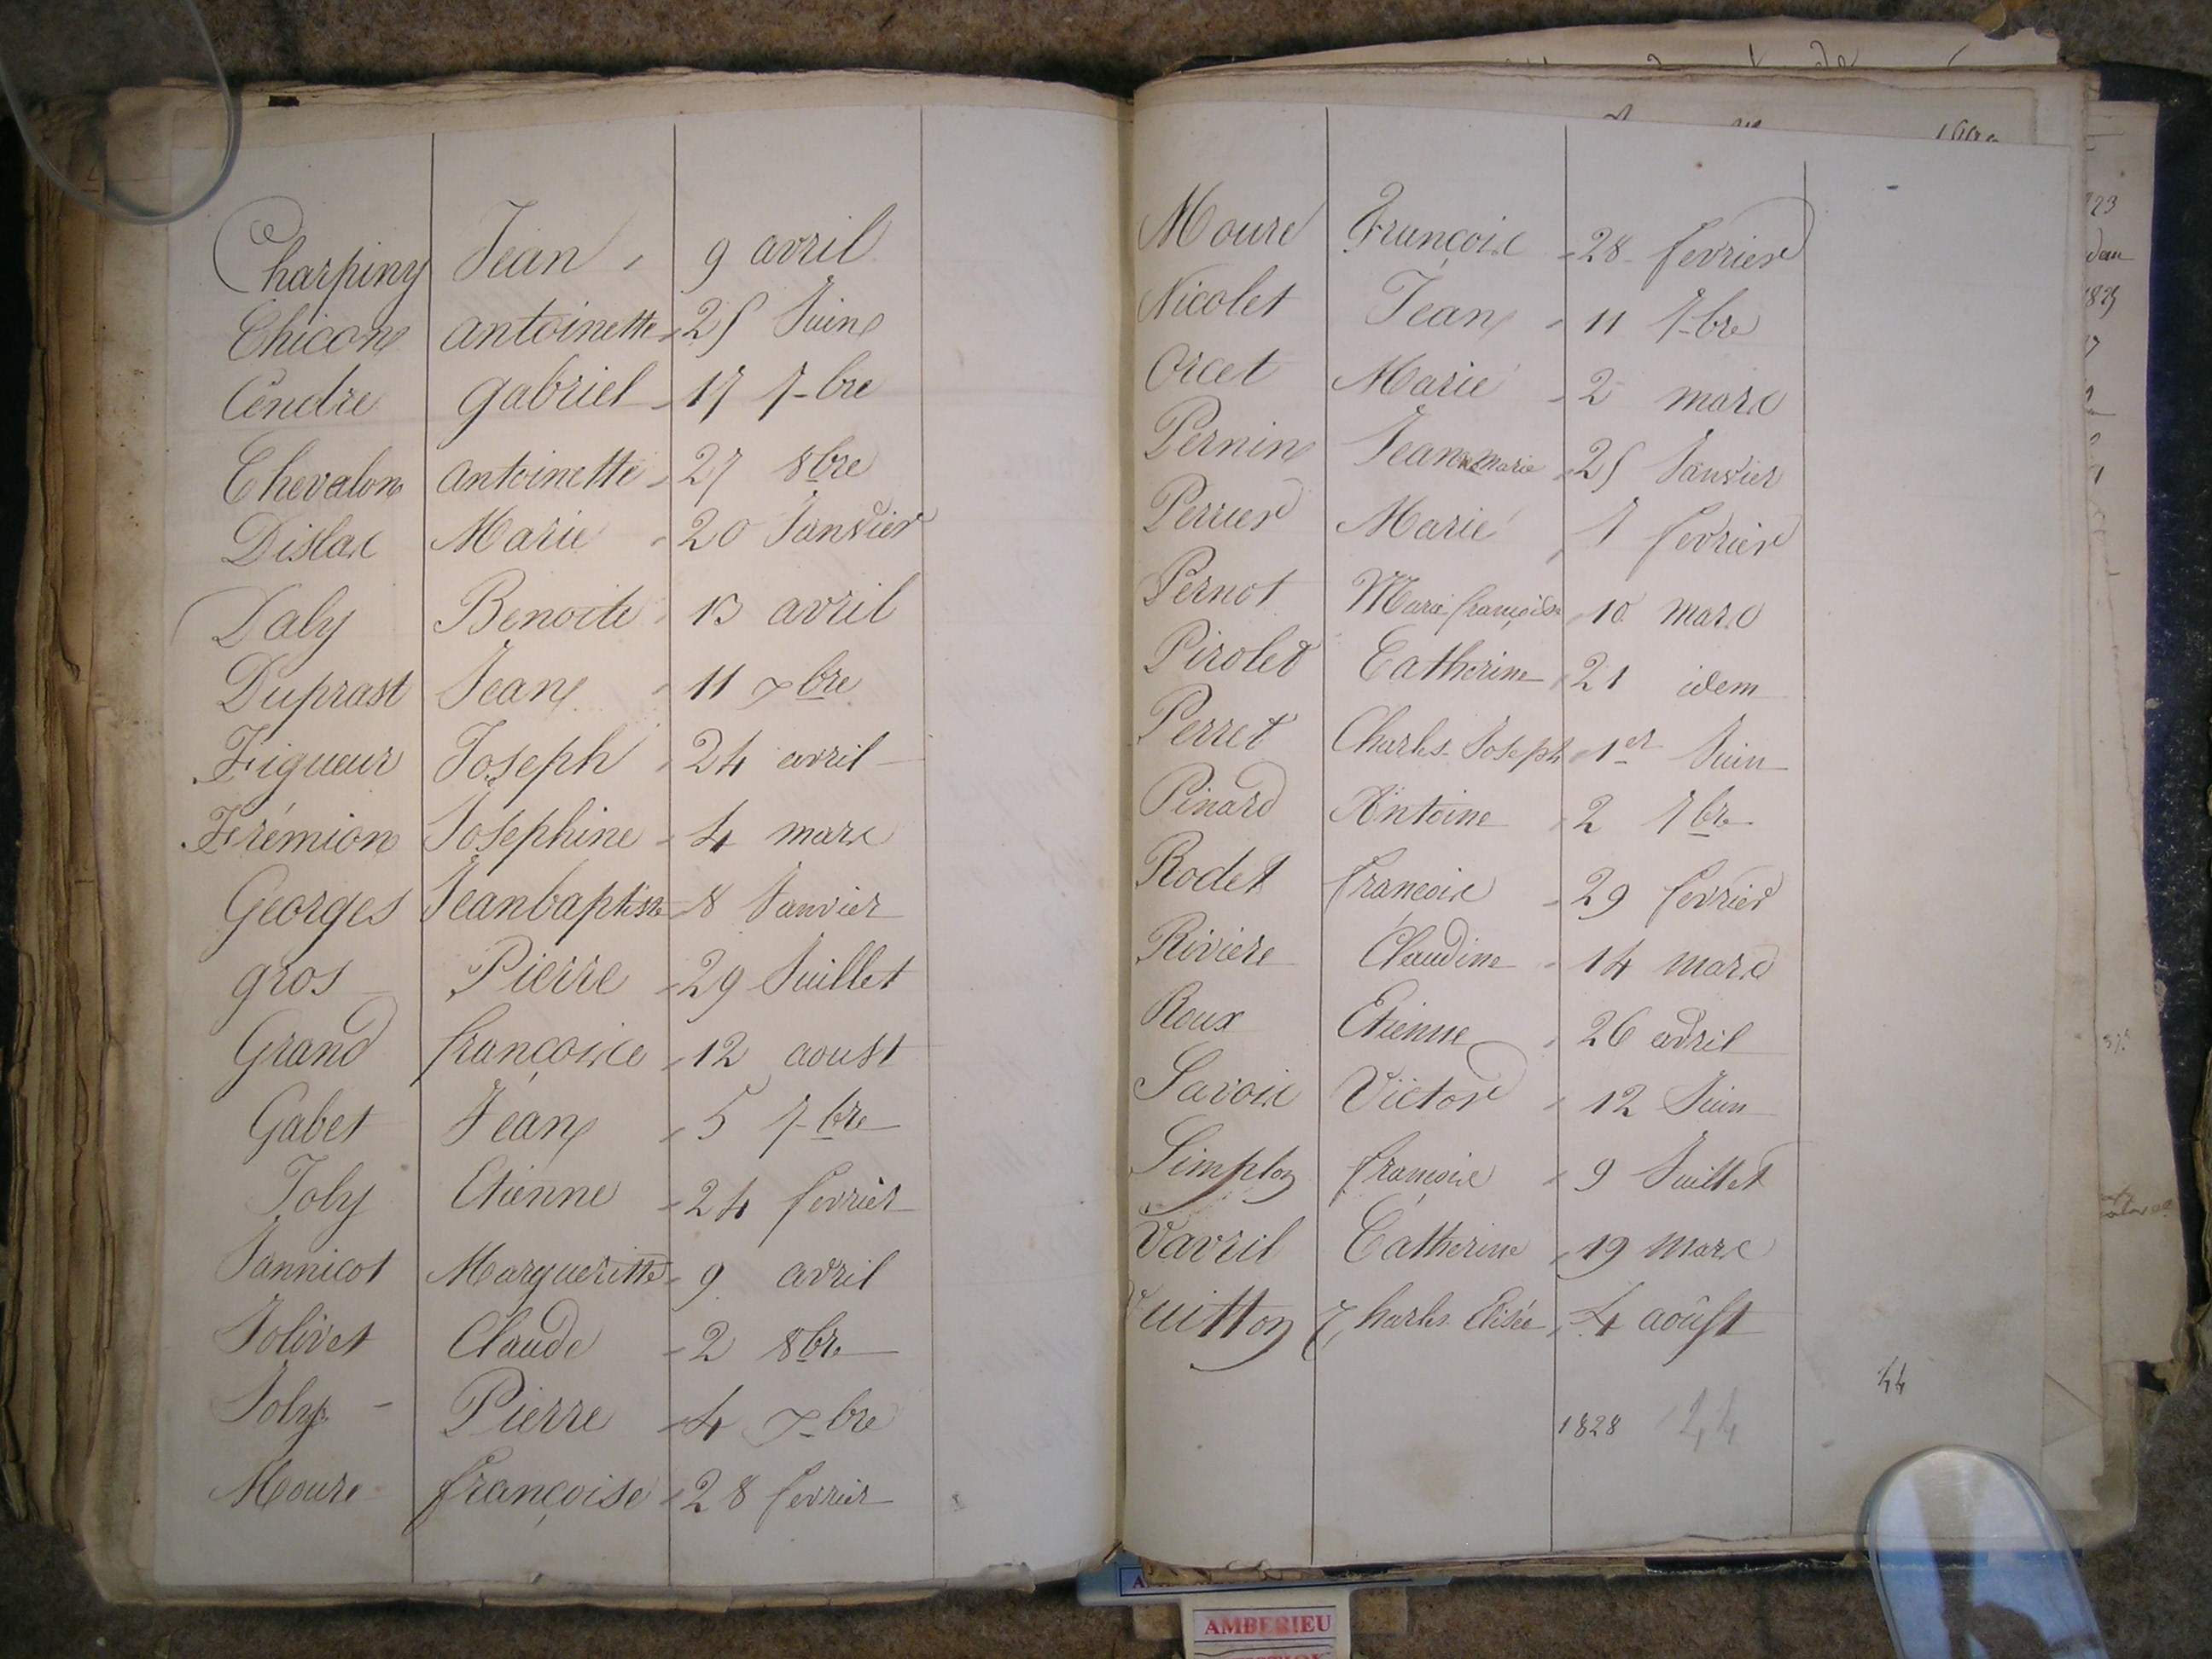 Charpiny Jean 9 avril
Chicon antoinette 25 Juin
Cendre gabriel 17 7-bre
Chevalon antoinette 27 8bre
Dislax Marie 20 Janvier
Daly Benoite 13 avril
Duprast Jean 11 7bre
Figueur Joseph 24 avril
Frémion Josephine 4 mars
Georges Jeanbaptiste 8 Janvier
gros Pierre 29 Juillet
Grand françoise 12 aoust
Gabet Jean 5 7-bre
Joly Etienne 24 fevrier
Jannicot Margueritte 9 avril
Jolivet Claude 2 8bre
Joly - Pierre 4 7-bre
Moure françoise 28 fevrier
Moure Françoise 28 fevrier
Nicolet Jean 11 7-bre
Orcet Marie 2 mars
Pernin Jeanne marie 25 Janvier
Perrier Marie 7 fevrier
Pernot Marie françoise 10 mars
Pirolet Catherine 21 idem
Perret Charles Joseph 1er Juin
Pinard Antoine 2 7bre
Rodet françois 29 fevrier
Riviere Claudine 14 mars
Roux Etienne 26 avril
Savoie Victor 12 Juin
Simplon françois 9 Juillet
Vavril Catherine 19 mars
Vuitton Charles Elisée 4 août
44
1828 44
AMBERIEU